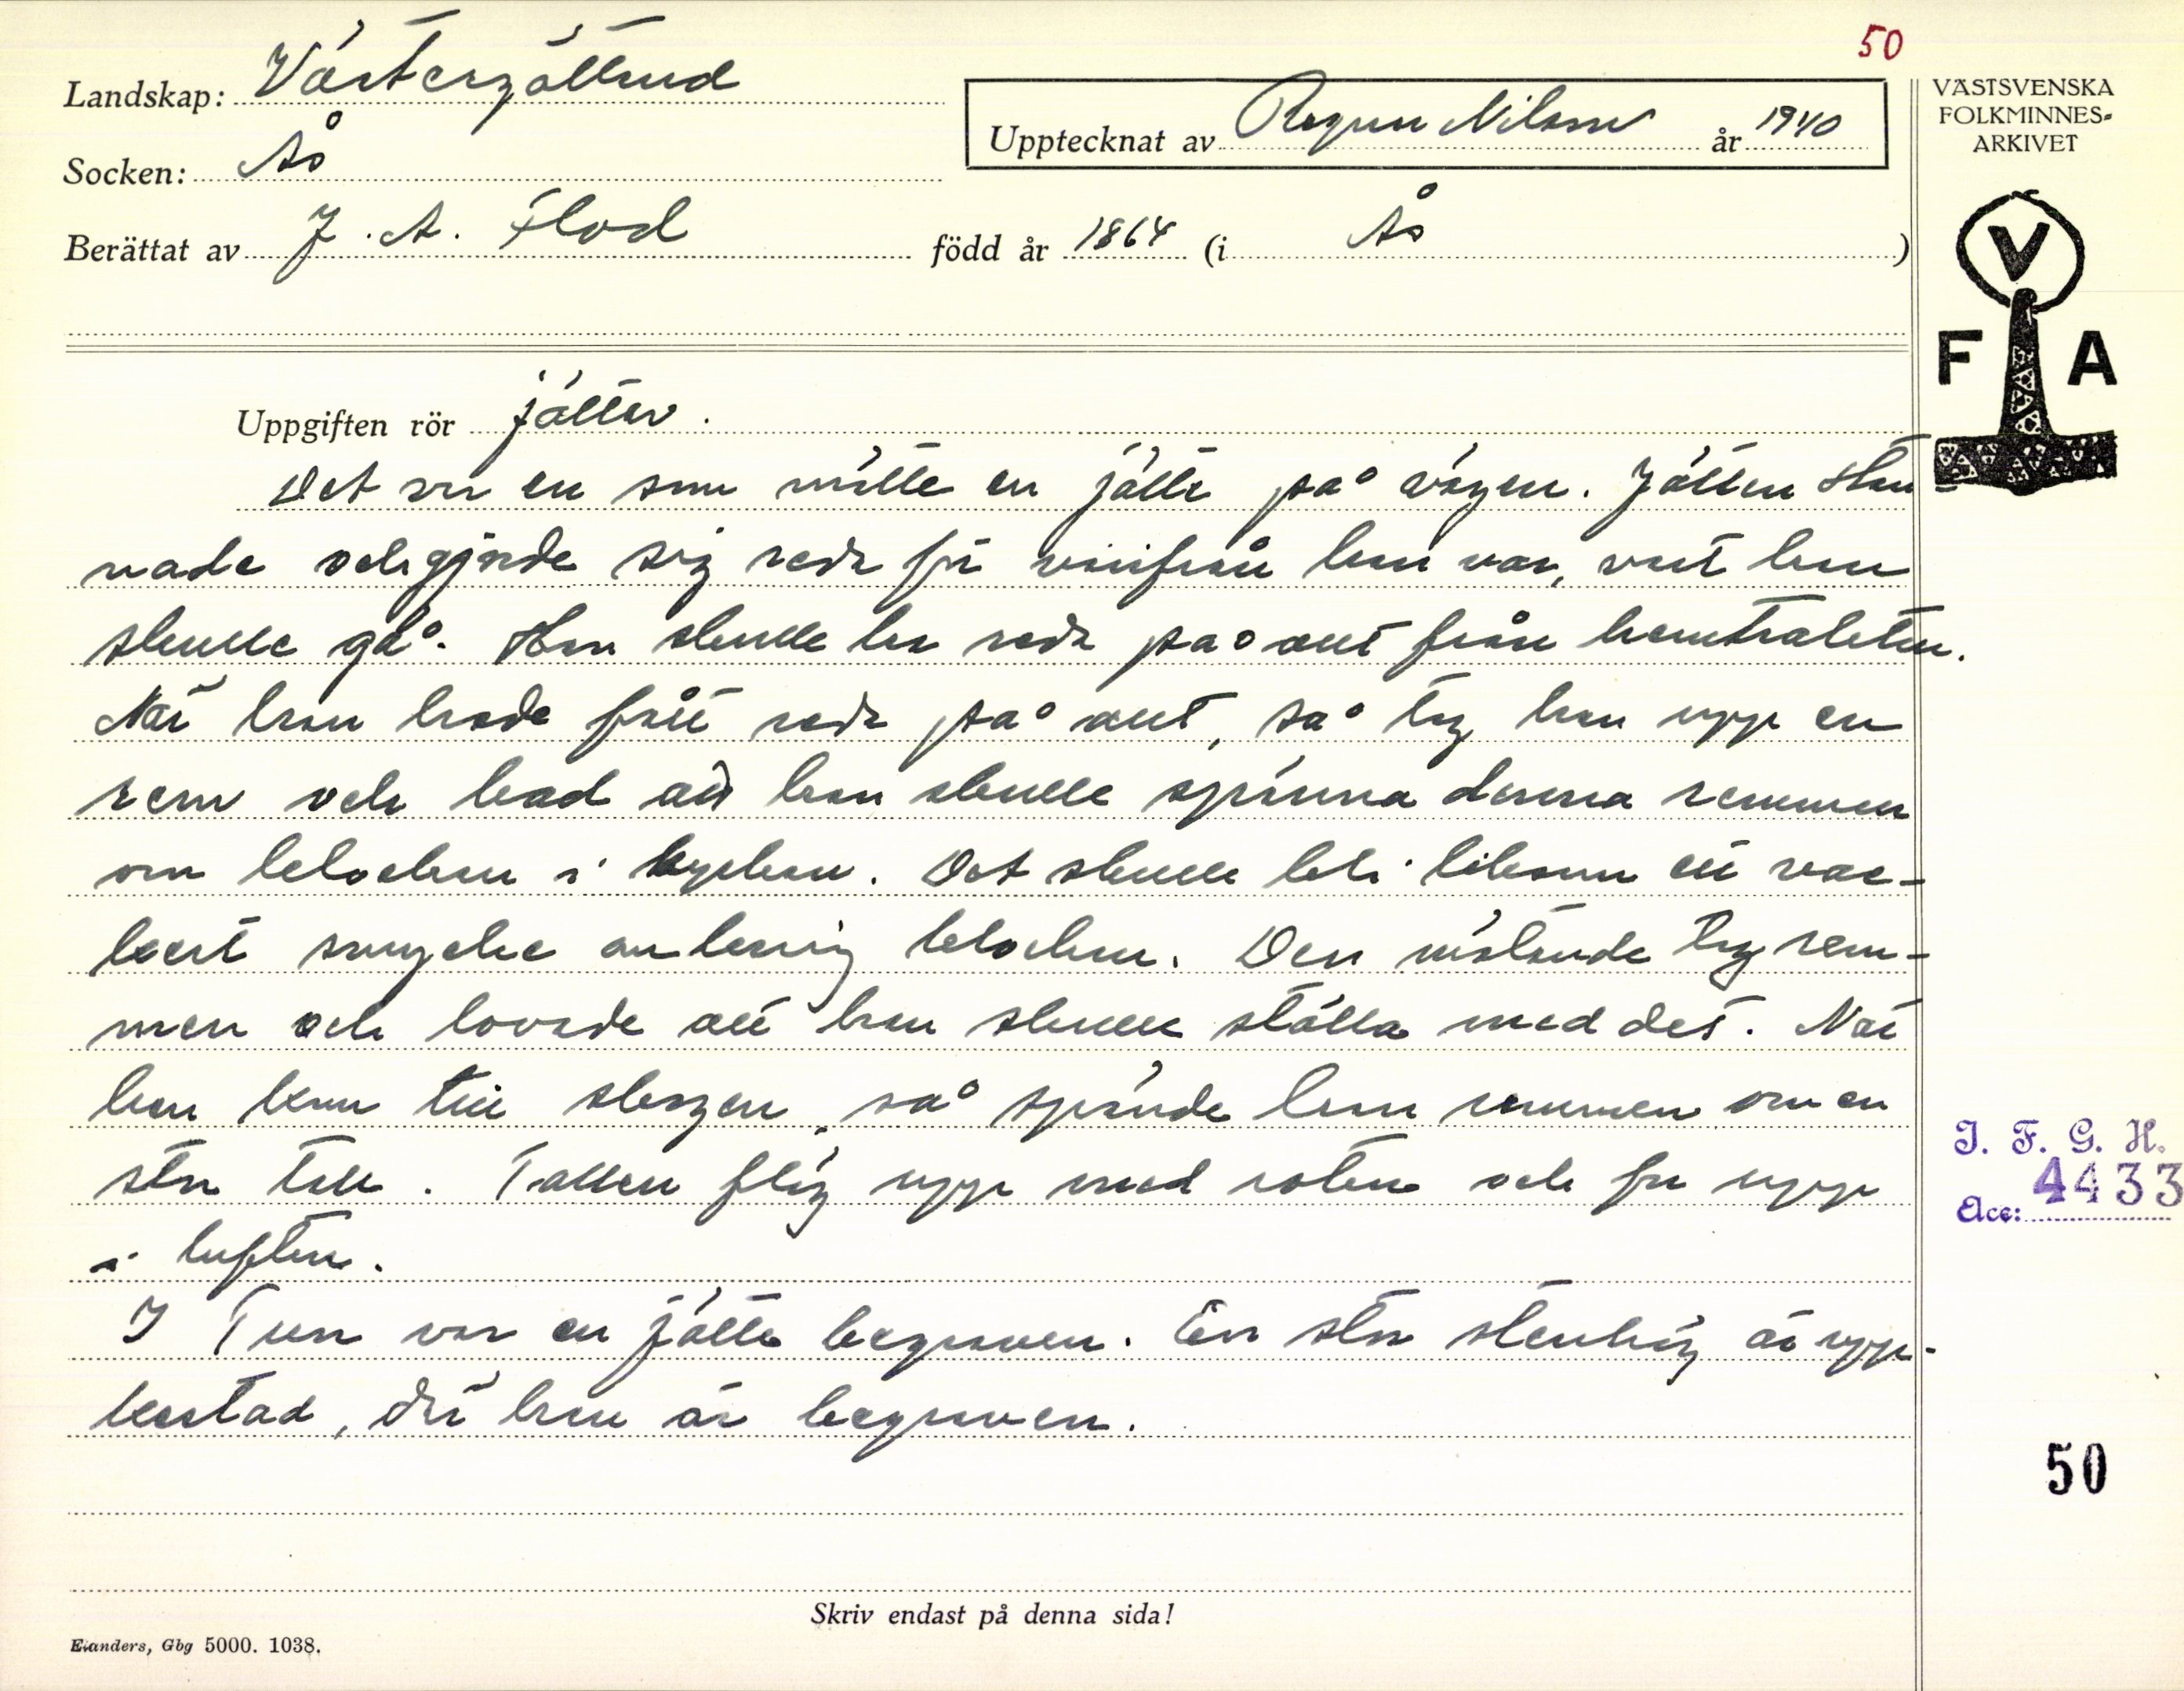 50
Landskap: Västergötland
Socken: Ås
Upptecknat av Ragnar Nilsson år 1940
Berättat av J. A. Flod född år 1864 (i Ås)
VÄSTSVENSKA
FOLKMINNES-
ARKIVET
V
F A
Uppgiften rör jätten.
Det var en som mötte en jätte på vägen. Jätten stan-
nade och gjorde sig reda för varifrån han var, vart han
skulle gå. Han skulle ha reda på allt från hemtrakten.
När han hade fått reda på allt, så tog han upp en
rem och bad att han skulle spänna denna remmen
om klockan i kyrkan. Det skulle bli liksom ett vac-
kert smycke omkring klockan. Den mötande tog rem-
men och lovade att han skulle ställa med det. När
han kom till skogen, så spände han remmen om en
stor tall. Tallen flög upp med roten och for upp
i luften.
I Tun var en jätte begraven. En stor stenhög är upp-
kastad, där han är begraven.
I. F. G. H.
Acc: 4433
50
Skriv endast på denna sida!
Elanders, Gbg 5000. 1038.